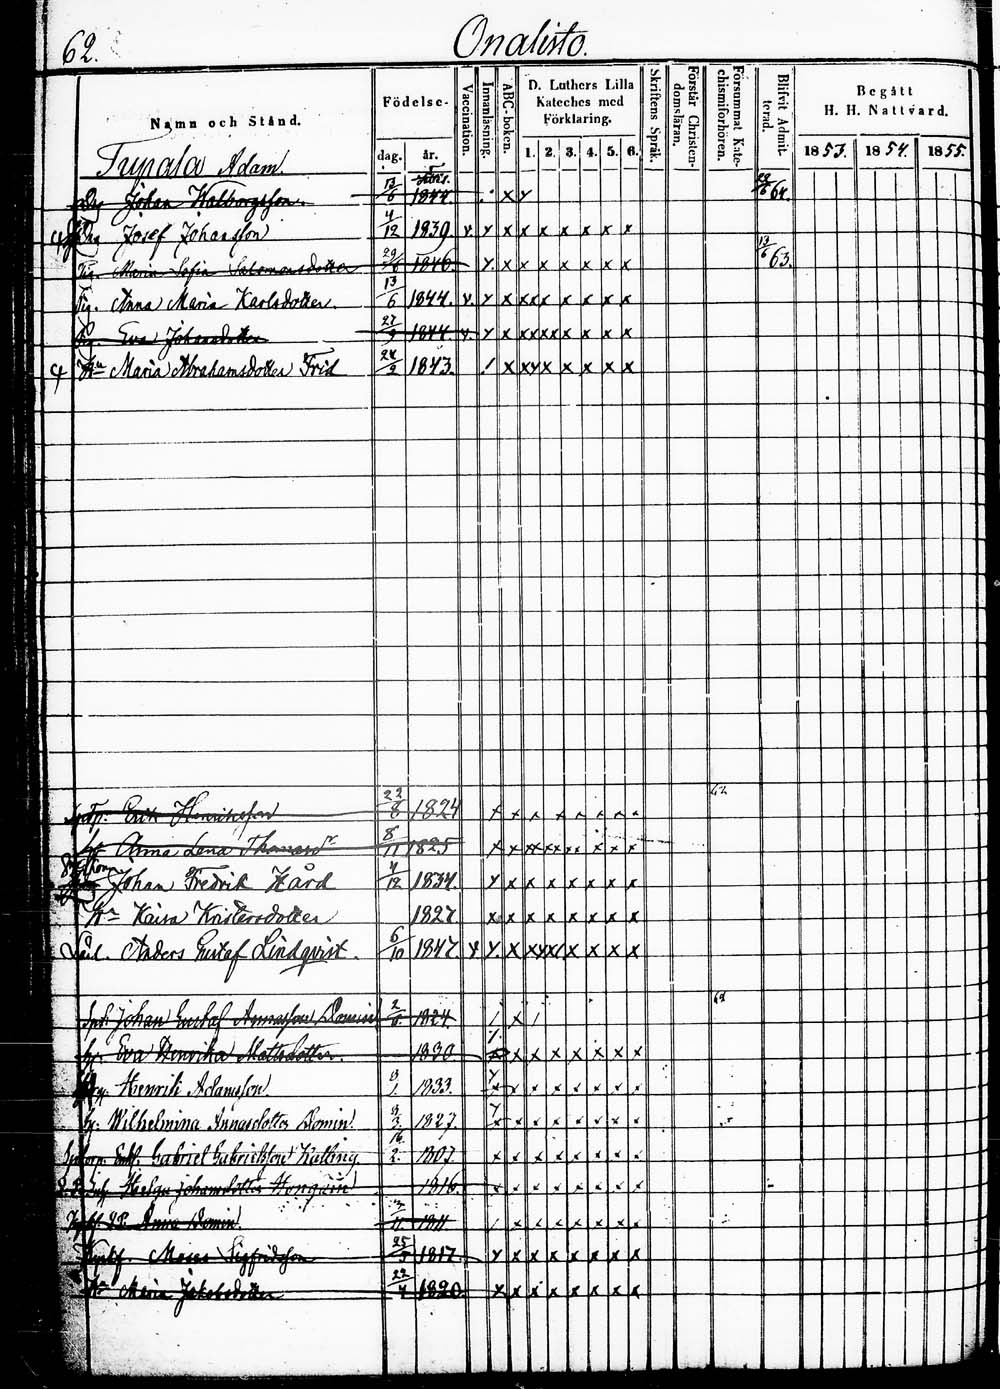 62.
Onalisto.
Namn och Stånd.
Födelse-
dag. år.
Vaccination.
Innanläsning.
ABC-boken.
D. Luthers Lilla
Kateches med
Förklaring.
1. 2. 3. 4. 5. 6.
Skriftens Språk.
Förstår Christen-
domsläran.
Försummat Kate-
chismiförhören.
Blifvit Admit-
terad.
Begått
H. H. Nattvard.
1853. 1854. 1855.
Tupala Adam.
Drg Johan Walborgsson. 13/6 1844. x y 64.
Drg Josef Johansson 4/12 1839. v. y x x x x x x x
Pig. Maria Sofia Salomonsdotter 1846. y. x x x x x x x 63.
Pig. Anna Maria Karlsdotter. 13/6 1844. v. y x xxx x x x x x
Pig. Eva Johansdotter 27/9 1844. v. y x xxxxx x x x
4 Hu Maria Abrahamsdotter Frid 24/2 1843. / x xyx x x x x
62
Erik Henriksson 22/8 1824 x x x x x x x x
Anna Lena 8/11 1825 x x xxxxx x x x
Johan Fredrik Hård 4/12 1834. y x x x x x x x
Hu Kaisa Kristersdotter 1827. x x x x x x x x
Anders Gustaf Lindqvist. 6/10 1847. y y. x xyxx x x x x
62
Johan Gustaf Annasson Domin 1824. / x /
Eva Henrika Mattsdotter. 1830 x x x x x x x x
Henrik Adamsson. 1833. x x x x x x x x
Wilhelmina Annasdotter Domin. 1827. x x x x x x x x
Gabriel Gabrielsson Kulling 16/2. 1807 x x x x x x x x
Helga Johansdotter 1816. x x x x x x x x
Anna Domin. / x x x x x x x
Moses Sigfridsson 25/5 1817. y x x x x x x x
Hu Maria Jakobsdotter 22/4 1820. x x x x x x x x